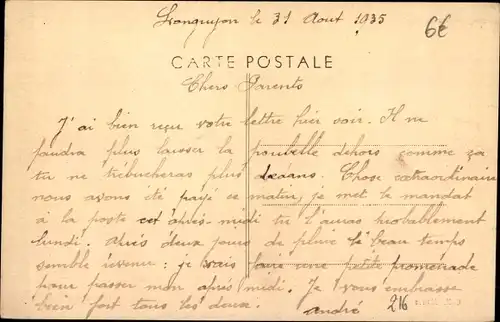 Longuyon le 31 Aout 1935
6€
CARTE POSTALE
Chers Parents
J'ai bien reçu votre lettre hier soir. Il ne
faudra plus laisser la poubelle dehors comme ça
tu ne trébucheras plus dedans. Chose extraordinaire
nous avons été payé ce matin, je met le mandat
à la poste cet après-midi tu l'auras probablement
lundi. Après deux jours de pluie le beau temps
semble revenu : je vais faire une petite promenade
pour passer mon après midi. Je vous embrasse
bien fort tous les deux.
André
216